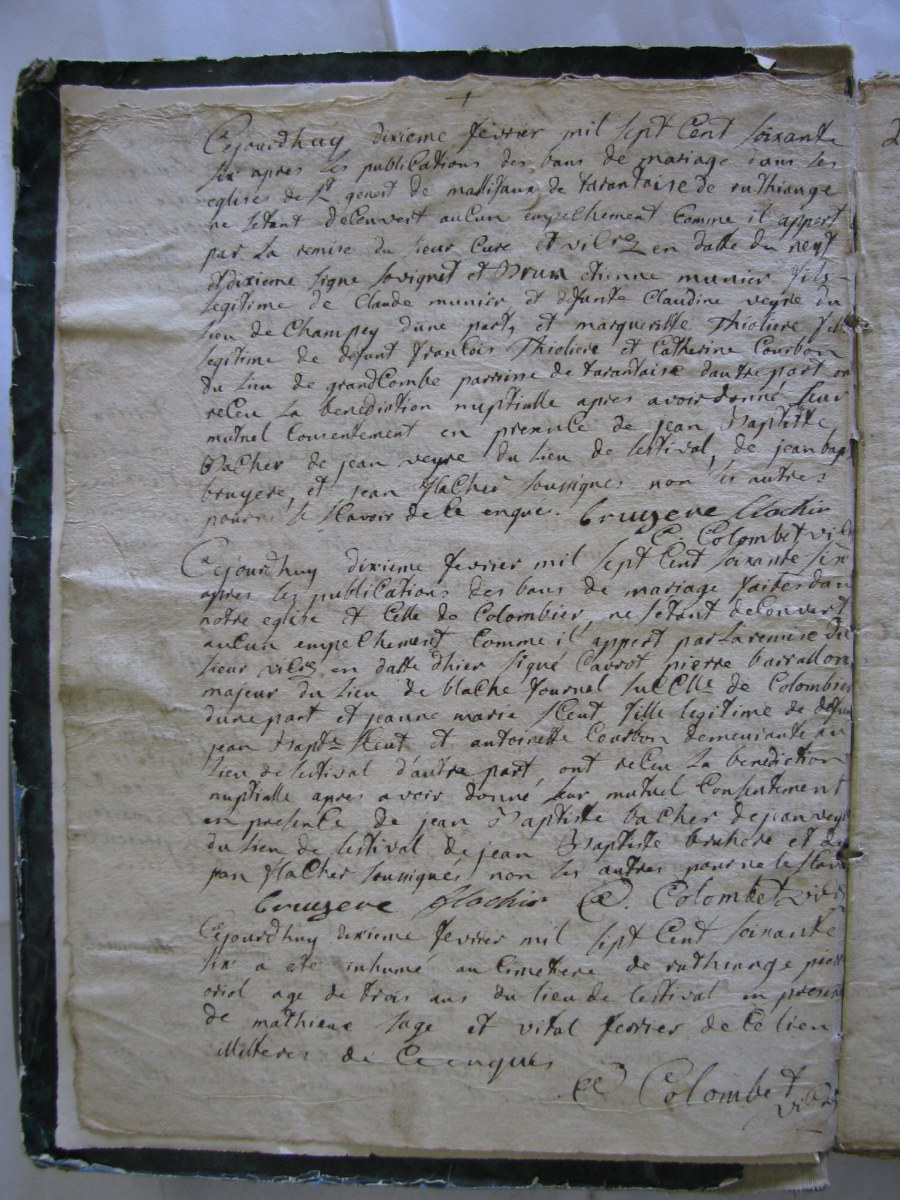 +
Cejourdhuy dixieme fevrier mil sept cent soixante
six apres les publications des bans de mariage dans les
eglises de st genest de mallifaux de tarantaise de ruthiange
ne setant decouvert aucun empechement comme il appert
par la remise du sieur Cure et vilre en datte du neuf
et dixieme signe sovignet et Brun etienne munier fils
legitime de Claude munier et defunte Claudine veyre du
lieu de Champey dune part, et margueritte Thioliere fille
legitime de defunt francois Thioliere et Catherine Courbon
du lieu de grandCombe parrine de tarantaise dautre part on
receu la benediction nuptialle apres avoir donné leur
mutuel Consentement en presence de jean Baptitte
Bacher de jean veyre du lieu de lestival, de jean bap
bruyere, et jean flacher sousignes non les autres
pour ne le scavoir de ce enque. bruyere flachir
C. Colombet vilre
Cejourdhuy dixieme fevrier mil sept Cent soixante six
apres les publications des bans de mariage faites dan
notre eglise et Celle de Colombier, ne setant decouvert
aucun empechement Comme il appert par la remise du
sieur vilre en datte dhier signé Cavrot pierre barrallon
majeur du lieu de blache fournel succlle de Colombier
dune part et jeanne marie seut fille legitime de defun
jean Baptte seut et antoinette Courbon demeurante au
lieu de lestival d'autre part, ont receu la benediction
nuptialle apres avoir donné leur mutuel Consentement
en présence de jean Baptitte bacher de jean vey
du lieu de lestival de jean Baptiste bruhere et de
jean flacher sousignés non les autres pour ne le scavo
bruyere flachir C. Colombet vilre
Cejourdhuy dixieme fevrier mil sept Cent soixante
six a ete inhumé au Cimetiere de ruthiange pierr
oriol age de trois ans du lieu de lestival en presen
de mathieu sage et vital ferrier de Ce lieu
illitteres de Ce enques
C Colombet
vilre